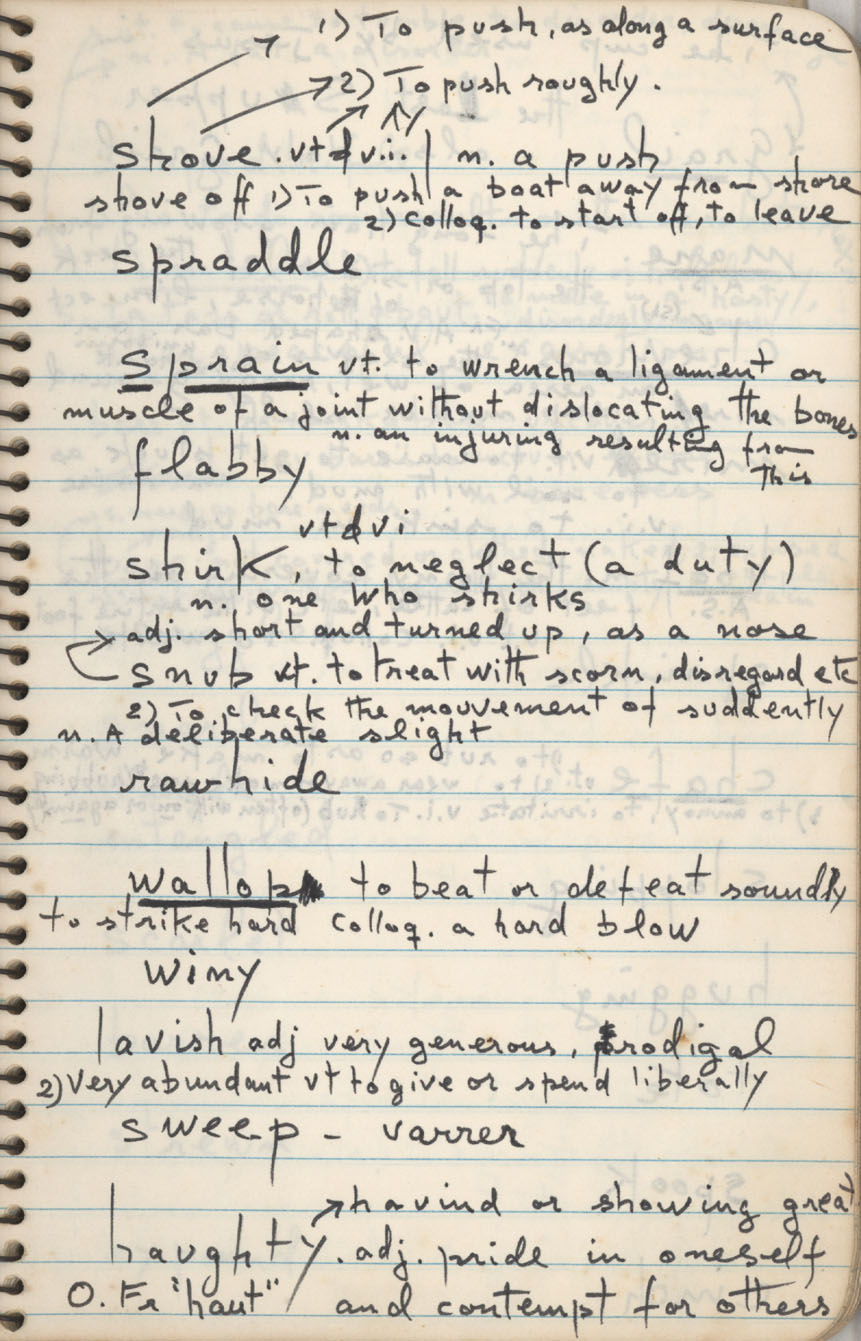 1) To push, as along a surface
2) To push roughly.
shove. vt & v.i. | n. a push
shove off 1) To push a boat away from shore
2) colloq. to start off, to leave
spraddle
sprain vt. to wrench a ligament or
muscle of a joint without dislocating the bones
n. an injuring resulting from
this
flabby
vt & vi
shirk, to neglect (a duty)
n. one who shirks
adj. short and turned up, as a nose
snub vt. to treat with scorn, disregard etc
2) To check the mouvement of suddently
n. A deliberate slight
rawhide
wallop to beat or defeat soundly
to strike hard colloq. a hard blow
winy
lavish adj very generous, prodigal
2) very abundant vt to give or spend liberally
sweep - varrer
havind or showing great
haughty. adj. pride in oneself
O. Fr "haut" and contempt for others